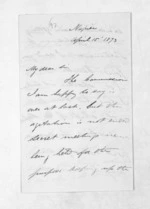 Napier
April 15th 1873
My dear Sir
The Commission
I am happy to say
over at last, but the
agitation is not over
secret meetings are
being held for the
purpose of